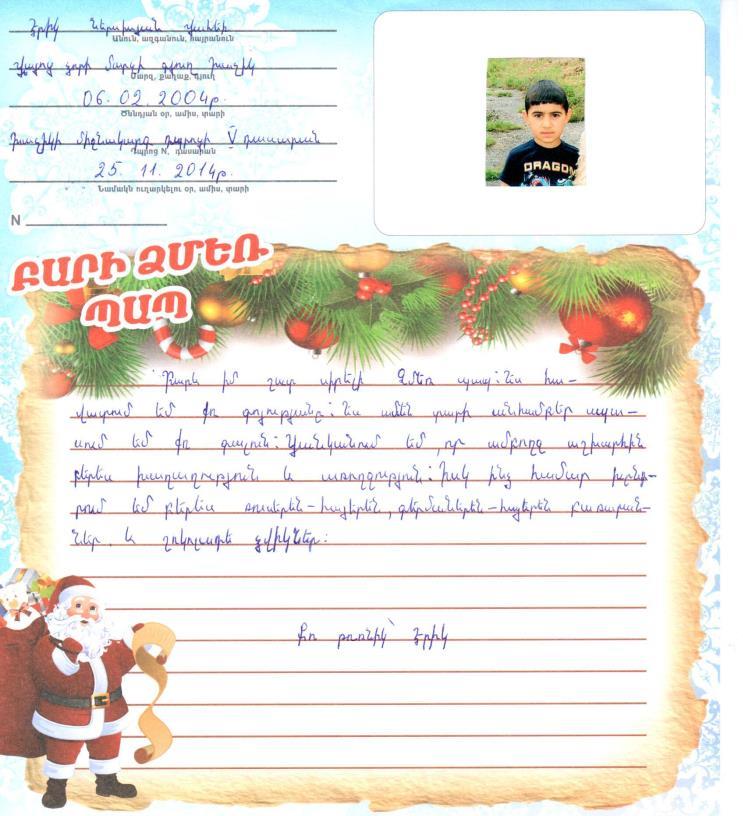 Էրիկ Ներսիսյան Վահեի
Անուն, ազգանուն, հայրանուն
Վայոց ձորի մարզի գյուղ Խաչիկ
Մարզ, քաղաք, գյուղ
06. 02. 2004թ.
Ծննդյան օր, ամիս, տարի
Խաչիկի միջնակարգ դպրոցի V դասարան
Դպրոց N, դասարան
25. 11. 2014թ.
Նամակն ուղարկելու օր, ամիս, տարի
N
ԲԱՐԻ ՁՄԵՌ
ՊԱՊ
DRAGON
Բարև իմ շատ սիրելի Ձմեռ պապ: Ես հա-
վատում եմ քո գոյությանը: Ես ամեն տարի անհամբեր սպա-
սում եմ քո գալուն: Ցանկանում եմ, որ ամբողջ աշխարհին
բերես խաղաղություն և առողջություն: Իսկ ինձ համար խնդ-
րում եմ բերես ռուսերեն-հայերեն, գերմաներեն-հայերեն բառարան-
ներ և շոկոլադե ձվիկներ:
Քո թոռնիկ՝ Էրիկ